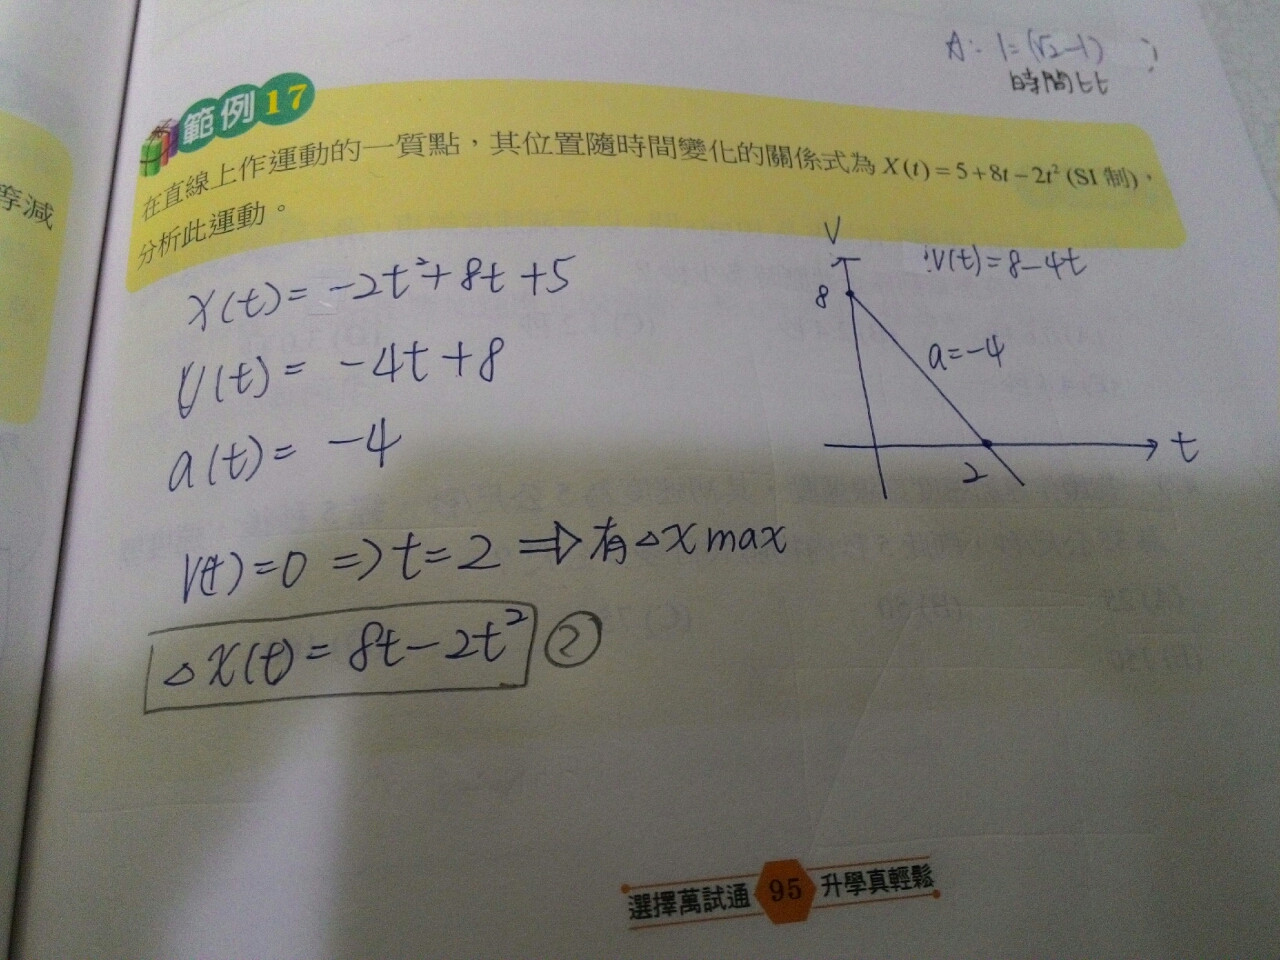 A: 1=(√2-1)
時間比
範例17
等減
在直線上作運動的一質點，其位置隨時間變化的關係式為X(t)=5+8t-2t²(SI制)，
分析此運動。
X(t)=-2t²+8t+5
V(t)=-4t+8
a(t)=-4
V(t)=0 => t=2 => 有△x max
△X(t)=8t-2t² ②
V
V(t)=8-4t
8
a=-4
t
2
選擇萬試通 95 升學真輕鬆